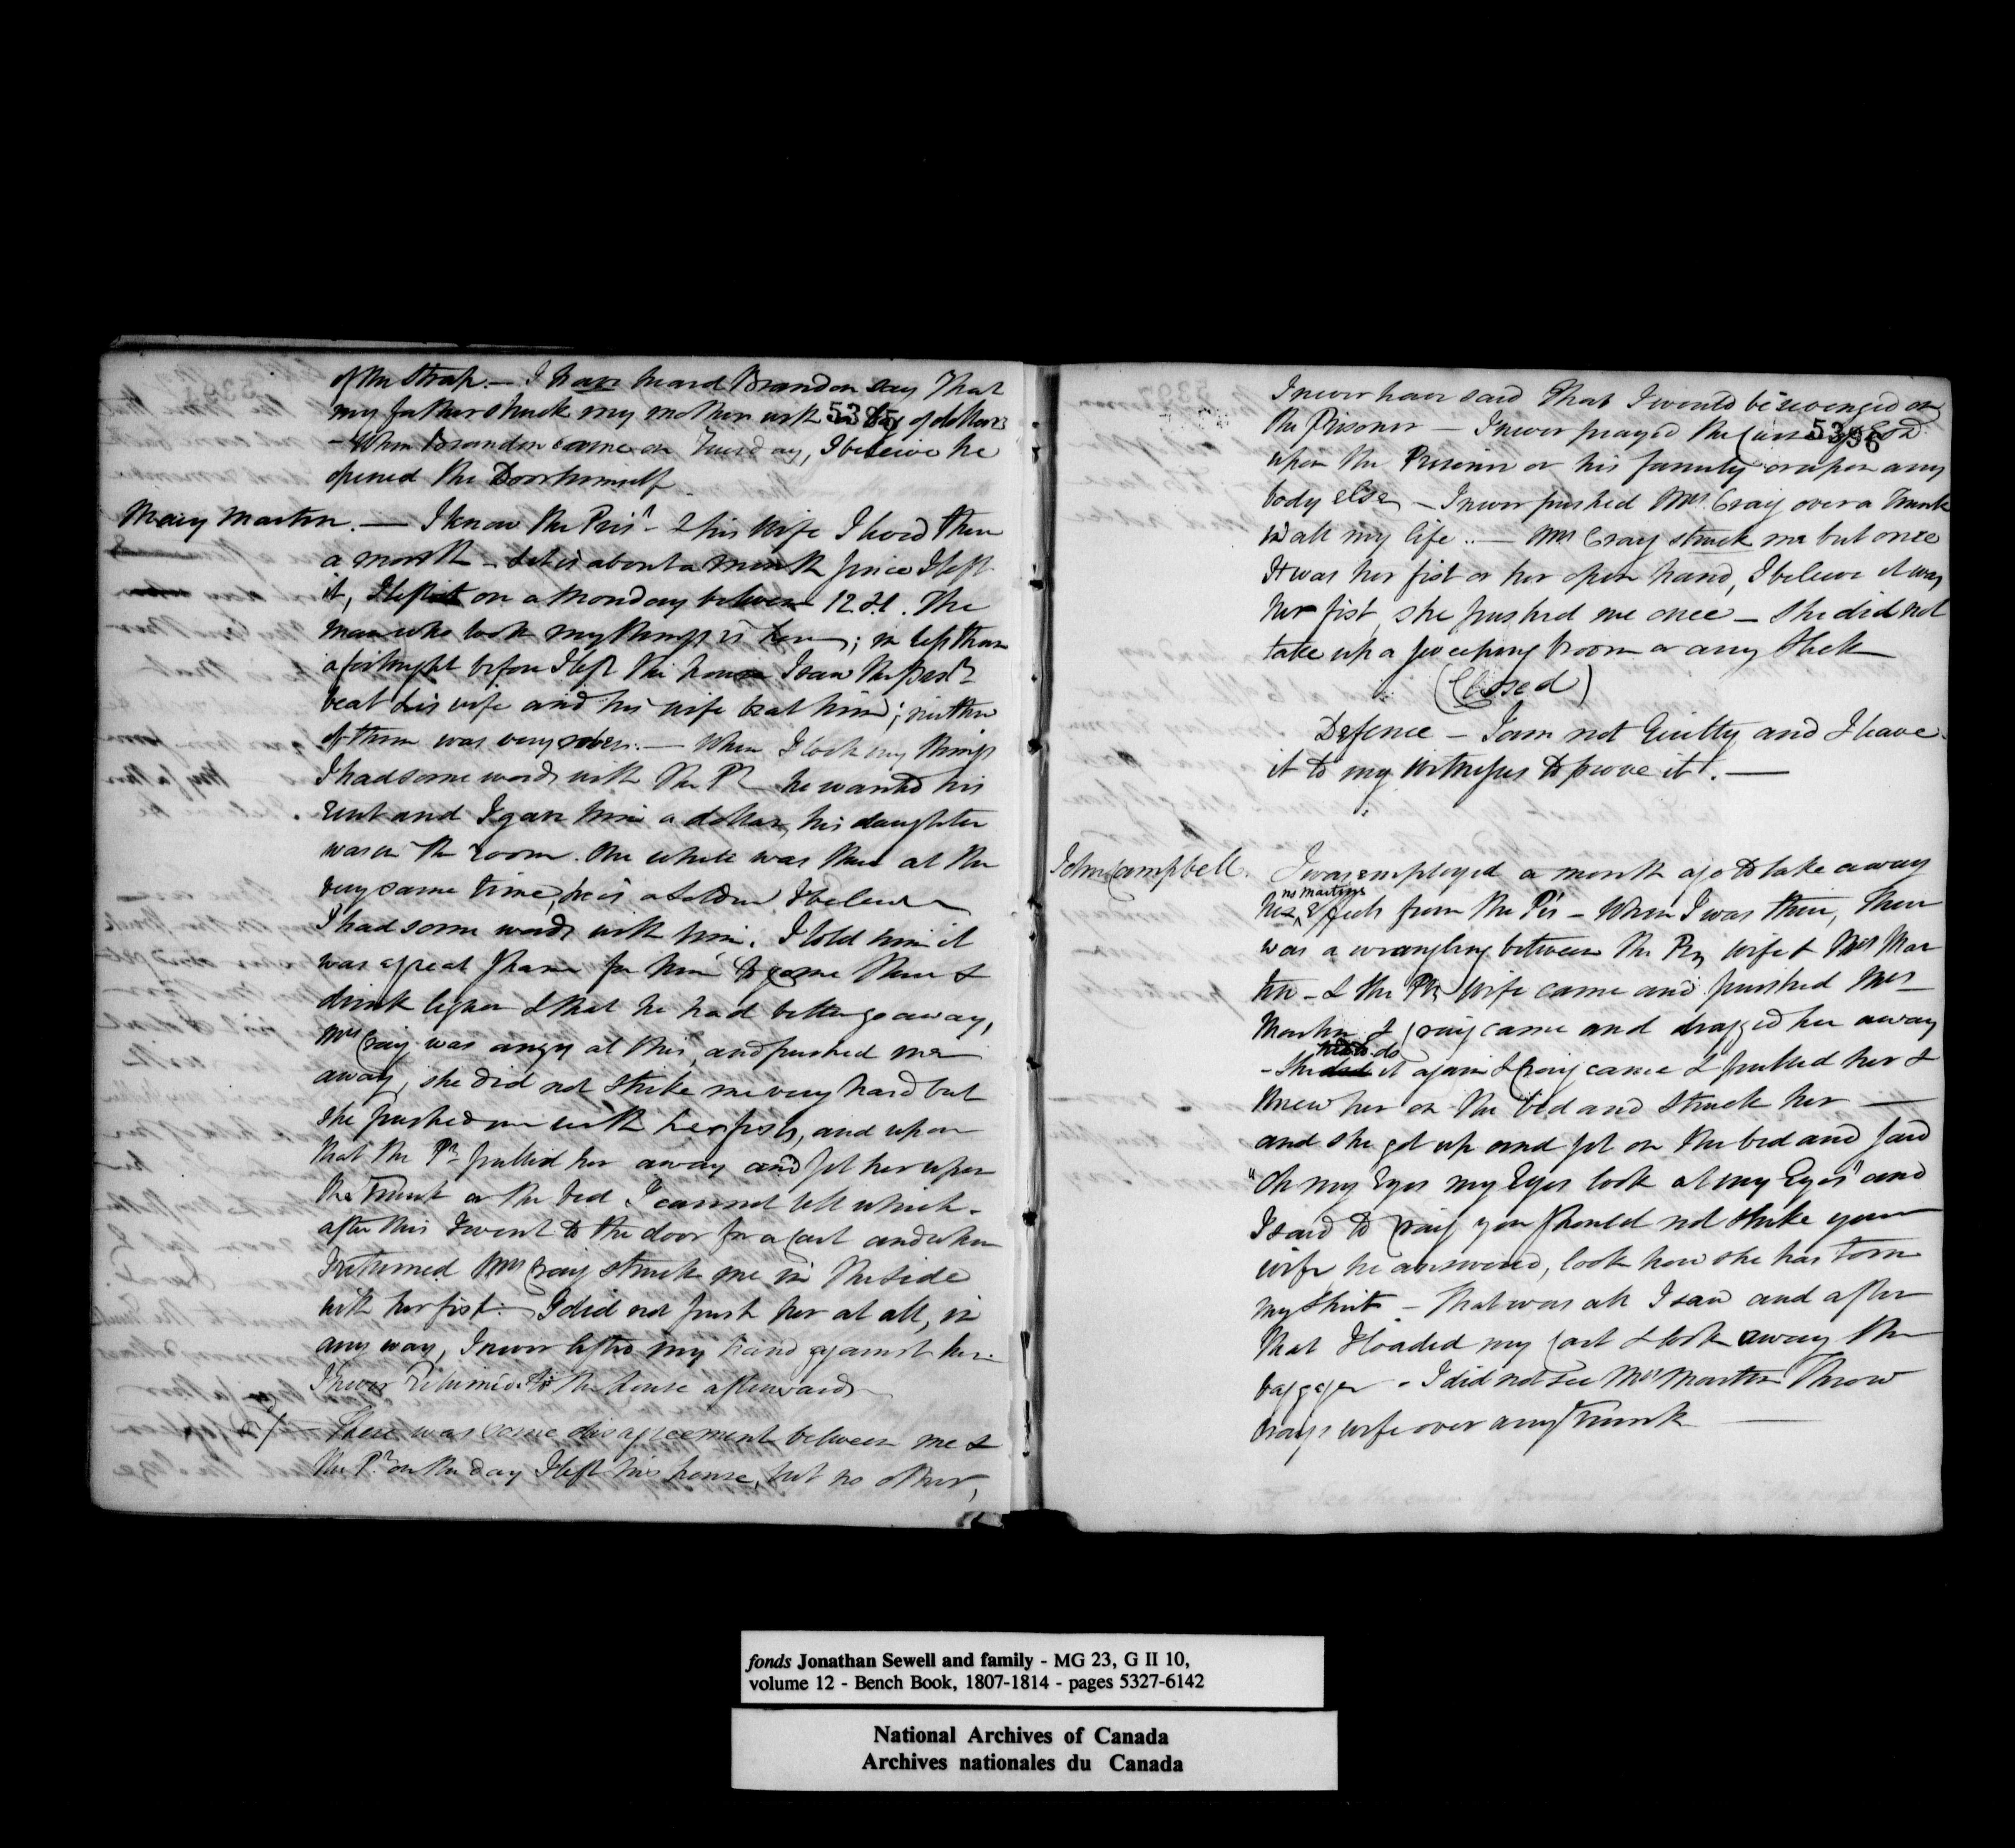 of the strap. — I have heard Brandon say that
my father struck my mother with 5385 of dollars
— When Brandon came on Tuesday, I believe he
opened the Door himself
Mary Martin. — I know the Pris^r & his Wife I lived there
a month — it is about a month since I left
it, I left it on a Monday between 12 & 1. The
man who took my things is here; in less than
a fortnight before I left the house I saw the Pris^r
beat his wife and his wife beat him; neither
of them was very sober. — When I took my things
I had some words with the P^r he wanted his
rent and I gave him a dollar, his daughter
was in the room. One White was there at the
very same time, he is a Soldier I believe
I had some words with him. I told him it
was a great shame for him to come there &
drink liquor & that he had better go away,
Mrs Craig was angry at this, and pushed me
away, she did not strike me very hard but
she pushed me with her fists, and upon
that the P^r pulled her away and set her upon
the Trunk or the bed I cannot tell which.
after this I went to the door for a Cart and when
I returned Mrs Craig struck me in the side
with her fist. I did not push her at all, in
any way, I never lifted my hand against her.
I never returned to the house afterwards
There was some disagreement between me &
the P^r on the day I left his house, but no other,
I never have said that I would be revenged on
the Prisoner — I never prayed the Curse of God
5396
upon the Prisoner or his family or upon any
body else — I never pushed Mrs. Craig over a Trunk
in all my life .. — Mrs Craig struck me but once
It was her fist or her open hand, I believe it was
her fist, she pushed me once — She did not
take up a sweeping broom or any Stick
(Closed)
Defence — I am not Guilty and I leave
it to my Witnesses to prove it. —
John Campbell. I was employed a month ago to take away
Mrs Martins
Effects from the P^rs — When I was there, there
was a wrangling between the P^rs wife & Mrs Mar
tin — & the P^rs Wife came and pushed Mrs
Martin & Craig came and dragged her away
— She did it again & Craig came & pulled her &
threw her on the bed and struck her —
and she got up and sat on the bed and said
"Oh my Eyes my Eyes look at my Eyes" and
I said to Craig you should not strike your
wife, he answered, look how she has torn
my Shirt — That was all I saw and after
that I loaded my Cart & took away the
baggage. I did not see Mrs Martin Throw
Craigs wife over any Trunk —
fonds Jonathan Sewell and family - MG 23, G II 10,
volume 12 - Bench Book, 1807-1814 - pages 5327-6142
National Archives of Canada
Archives nationales du Canada